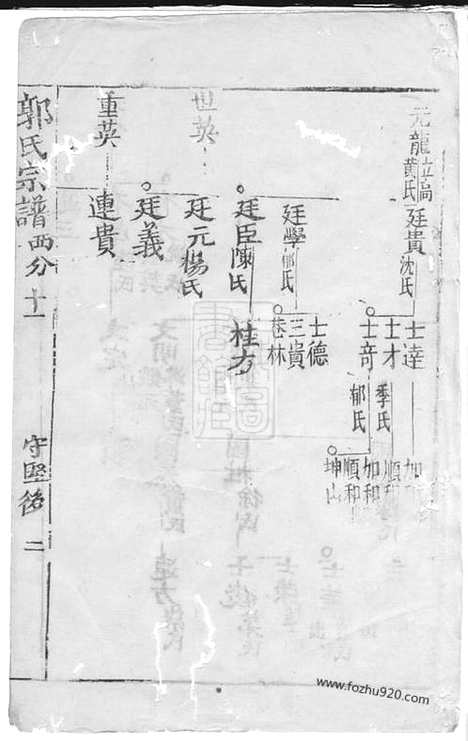 元龍
黄氏
廷貴
沈氏
士達
士才
季氏
士竒
郁氏
加和
順和
加和
順和
坤山
廷學
郁氏
士德
三貴
林
廷臣陳氏
桂方
世英
廷元楊氏
廷義
重英
連貴
郭氏宗譜西分十一
守堅後
二
www.fozhu920.com